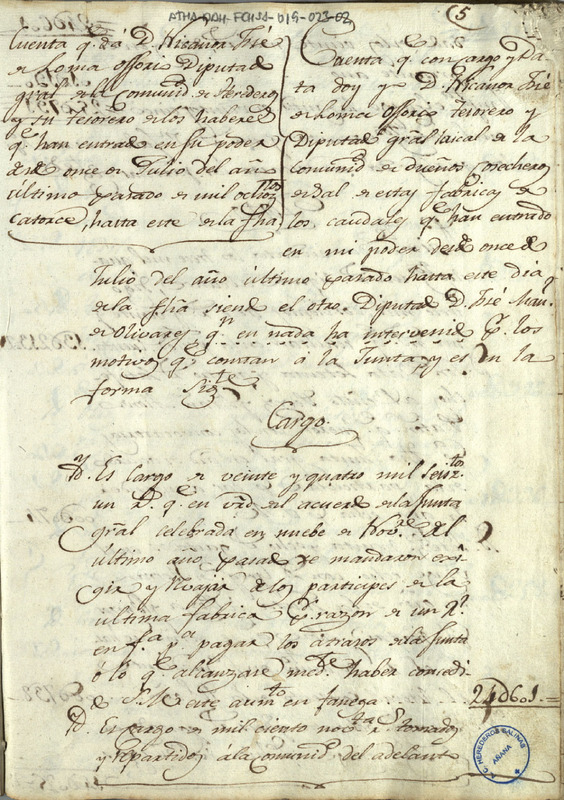 ATHA-DAH-FCHSA-019-023-02
5
Cuenta q. dá D. Nicanor Jhé
de Loma Ossorio Diputad.
gral. de la Comunid. de Herederos
y su tesorero de los haberes
q. han entrado en su poder
desde once de Julio del año
último pasado de mil ochocientos
catorce, hasta este de la fha.
Cuenta q. con cargo y Da
ta doy yo D. Nicanor Jhé
de Loma Ossorio tesorero y
Diputad. gral. laical de la
Comunid. de dueños cosecheros
de sal de estas fabricas de
los caudales q. han entrado
en mi poder desde once de
Julio del año último pasado hasta este dia
de la fha. siendo el otro Diputad. D. Jhé Man.
de Olivares q.n en nada ha intervenido p. los
motivos q. constan á la Junta, y es en la
forma sig.te
Cargo.
Yd. Es Cargo de veinte y quatro mil seisz.tos
un r.l q. en vrd. del acuerdo de la Junta
gral celebrada en nuebe de Nov.e del
último año pasado se mandaron exi-
gir y rebajar á los participes de la
última fabrica p. razon de un r.l
en f.a p.a pagar los atrazos de la Junta
ó lo q. alcanzare med.te haber concedi
do S. M. este aum.to en fanega
24d601.=
Yd. Es cargo de mil ciento nov.ta tomados
y repartidos á la Comunid. del adelant
A.C. HEREDEROS SALINAS
AÑANA